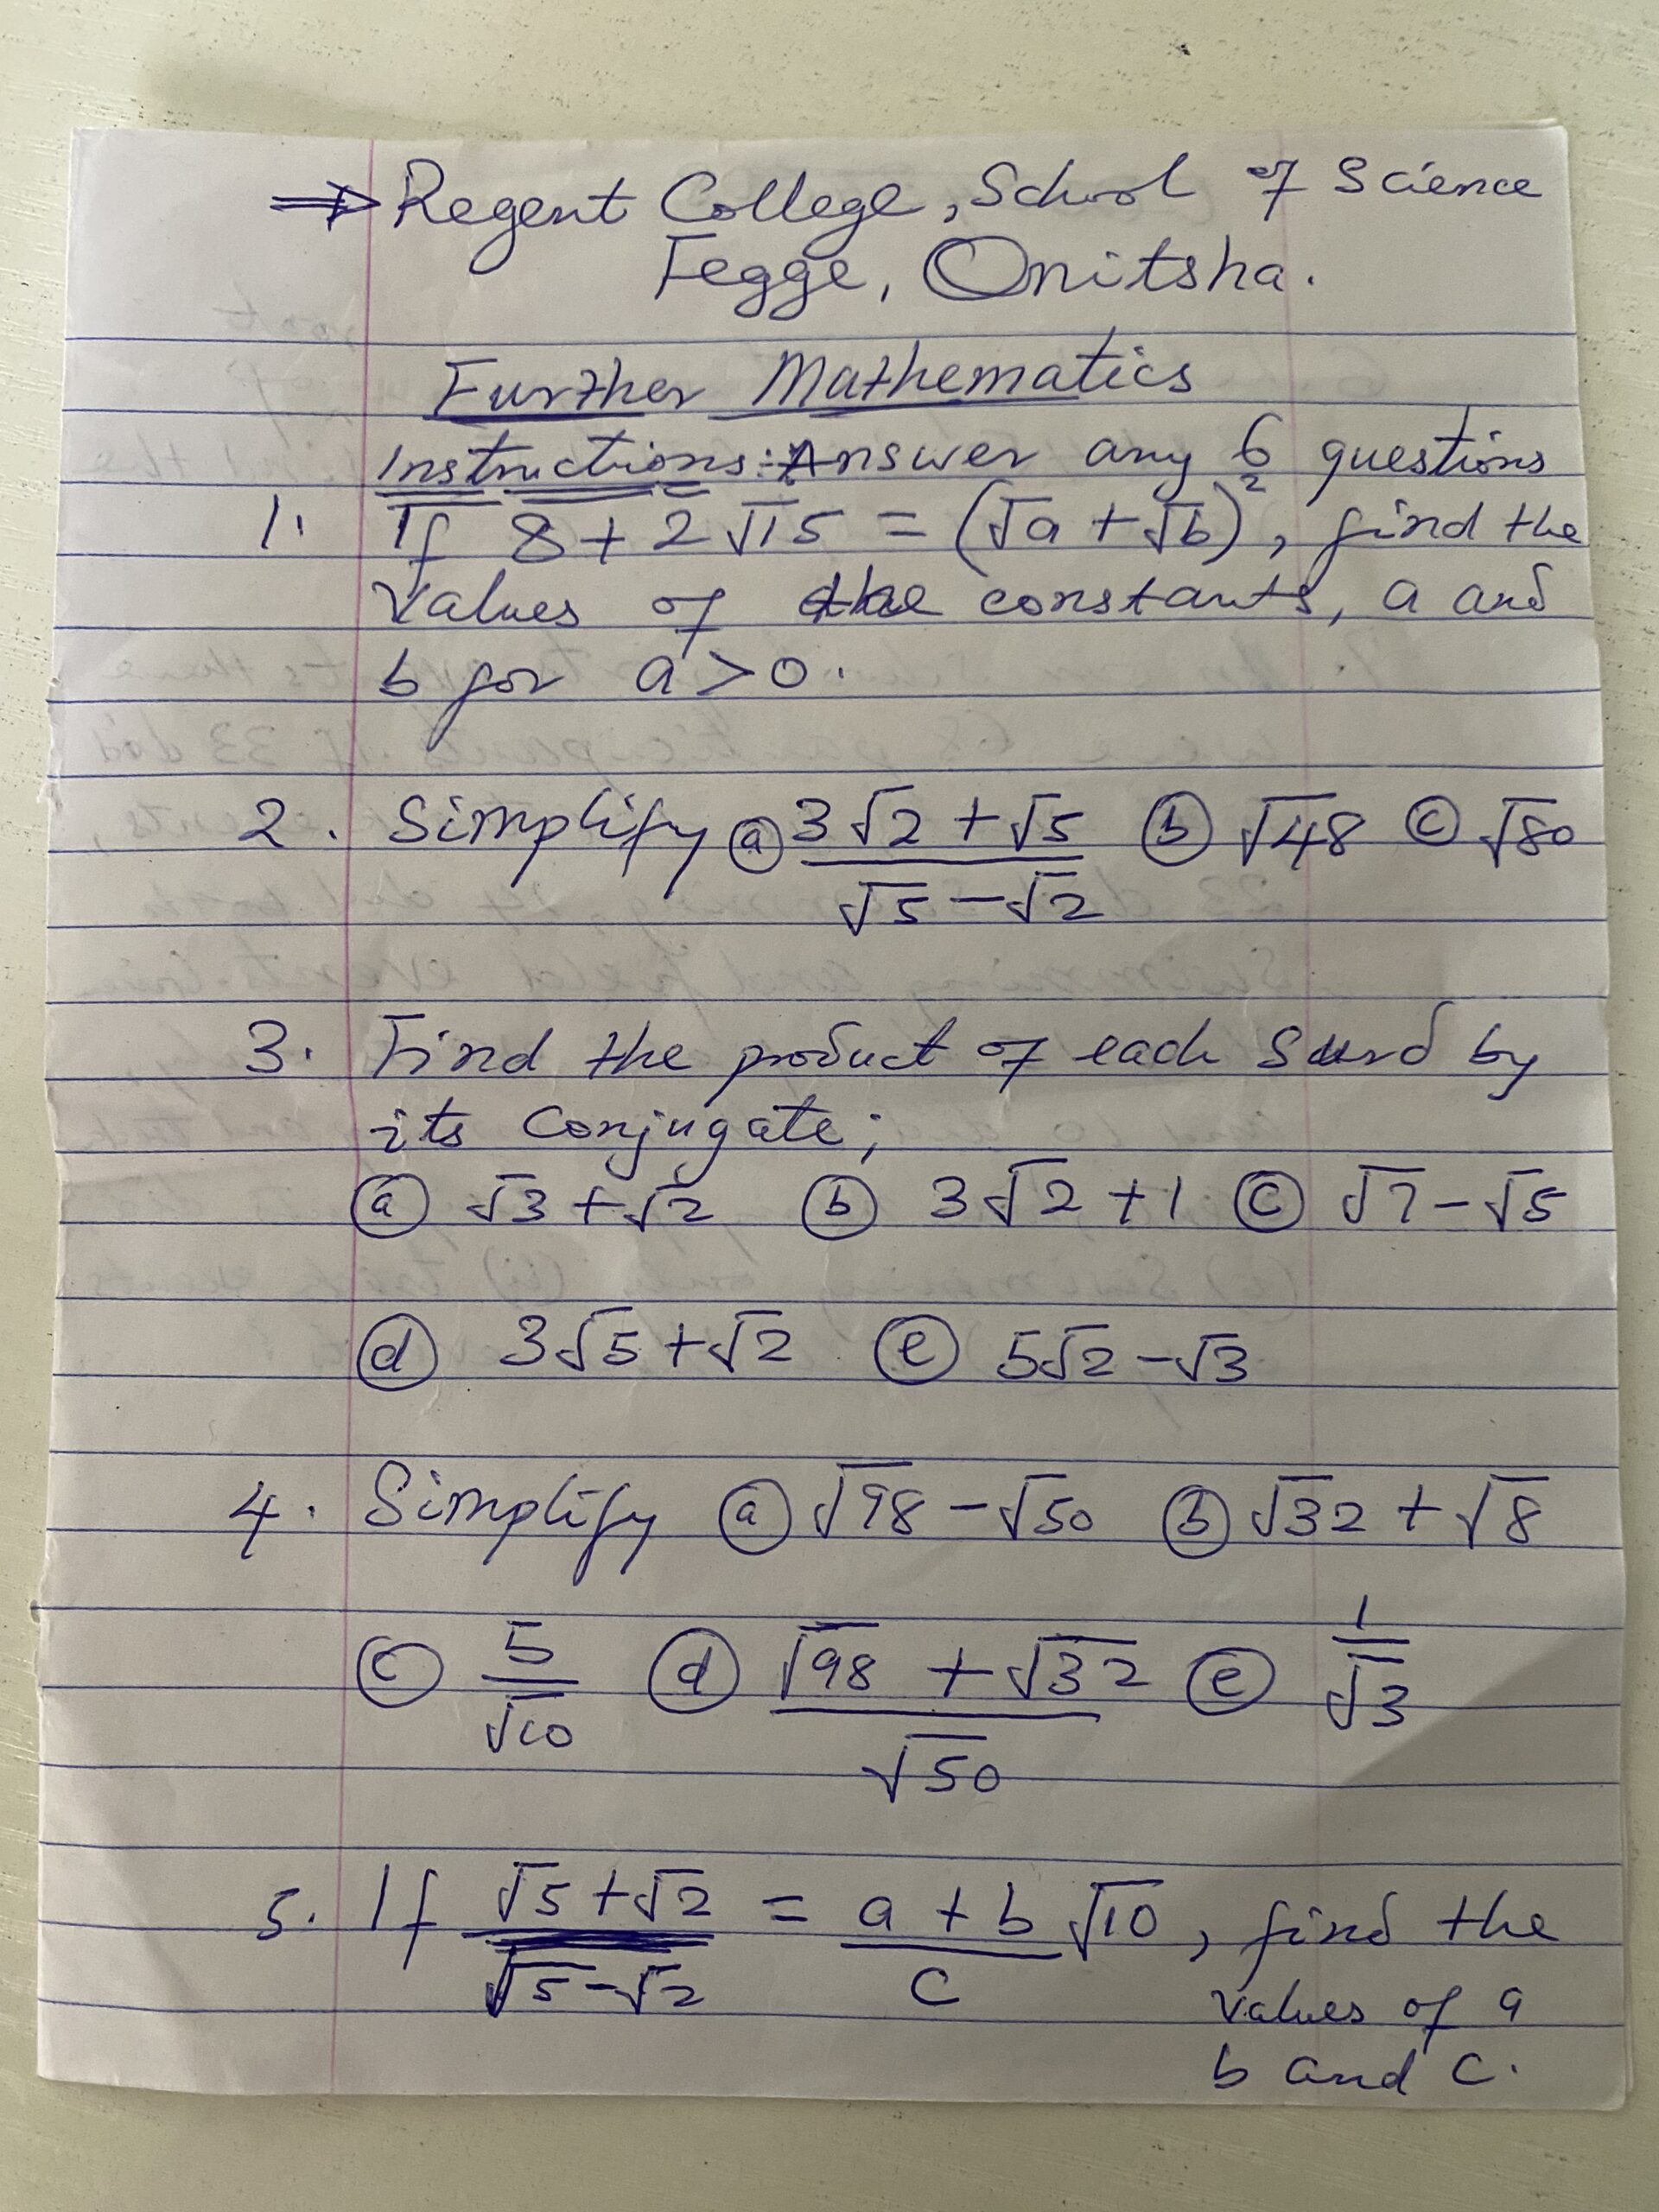 ⇒ Regent College, School of Science
Fegge, Onitsha.
Further Mathematics
Instructions: Answer any 6 questions
1. If 8 + 2√15 = (√a + √b)², find the
values of the constants, a and
b for a > 0.
2. Simplify ⓐ (3√2 + √5)/(√5 − √2) ⓑ √48 ⓒ √80
3. Find the product of each surd by
its conjugate;
ⓐ √3 + √2 ⓑ 3√2 + 1 ⓒ √7 − √5
ⓓ 3√5 + √2 ⓔ 5√2 − √3
4. Simplify ⓐ √98 − √50 ⓑ √32 + √8
ⓒ 5/√10 ⓓ (√98 + √32)/√50 ⓔ 1/√3
5. If (√5 + √2)/(√5 − √2) = (a + b)/c √10, find the
values of a
b and c.